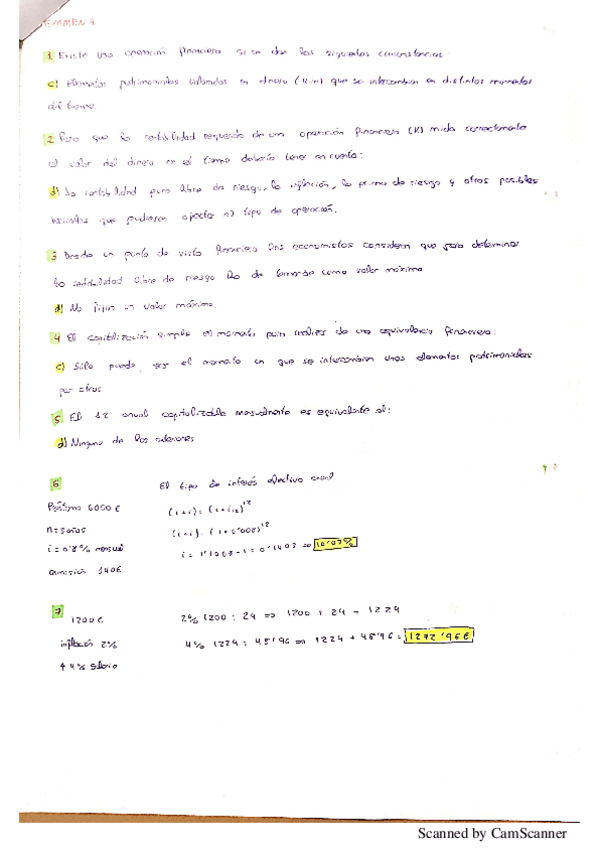 EXAMEN 1
1 Existe una operación financiera si se dan las siguientes circunstancias:
c) Elementos patrimoniales valorados en dinero (u.m) que se intercambian en distintos momentos
del tiempo.
2 Para que la rentabilidad requerida de una operación financiera (K) mida correctamente
el valor del dinero en el tiempo debería tener en cuenta:
d) La rentabilidad pura libre de riesgo, la inflación, la prima de riesgo y otras posibles
variables que pudieran afectar al tipo de operación.
3 Desde un punto de vista financiero los economistas consideran que para determinar
la rentabilidad libre de riesgo Ro se tomarán como valor máximo
d) No fijan un valor máximo.
4 El capitalización simple el momento para realizar de una equivalencia financiera:
c) Sólo puede ser el momento en que se intercambian unos elementos patrimoniales
por otros
5 El 12 anual capitalizable mensualmente es equivalente al:
d) Ninguno de los anteriores
6 El tipo de interés efectivo anual
Préstamo 6000 € (1+i) = (1+i12)^12
n = 3 años (1+i) = (1+0'008)^12
i = 0'8% mensual 10'03%
140€
7 1200 € 2% 1200 = 24 => 1200 + 24 = 1224
inflación 2% 4% 1224 = 48'96 => 1224 + 48'96 = 1272'96 €
4% salario
Scanned by CamScanner